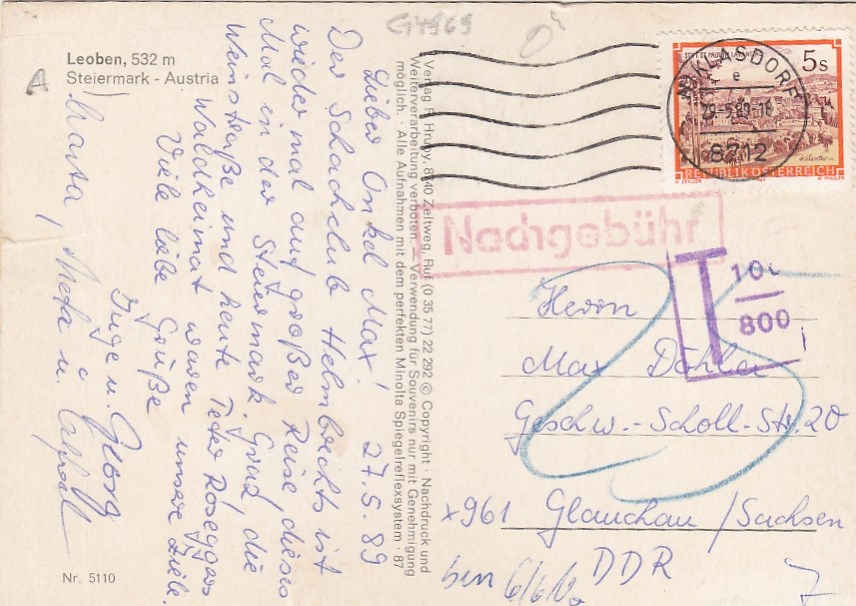 G4969
Leoben, 532 m
Steiermark - Austria
A
27.5.89
Lieber Onkel Max!
Der Schachclub Helmbrechts ist
wieder mal auf großer Reise, dieses
Mal in der Steiermark. Graz, die
Weinstraße und heute Peter Roseggers
Waldheimat waren unsere Ziele.
Viele liebe Grüße
Inge u. Georg
Marta,
Nr. 5110
Verlag F. Hruby, 8740 Zeltweg, Ruf (0 35 77) 22 292 © Copyright · Nachdruck und
Weiterverarbeitung verboten. Verwendung für Souvenirs nur mit Genehmigung
möglich. · Alle Aufnahmen mit dem perfekten Minolta Spiegelreflexsystem · 87
5 S
REPUBLIK ÖSTERREICH
NIKLASDORF
e
29-5.89-18
8712
Nachgebühr
T
10
800
Herrn
Max Döhler
Geschw.-Scholl-Str. 20
x961 Glauchau /Sachsen
DDR
7